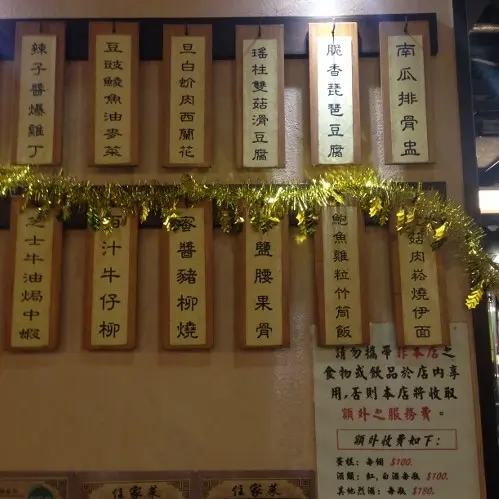 南瓜排骨盅
脆香琵琶豆腐
瑤柱雙菇滑豆腐
旦白蚧肉西蘭花
豆豉鯪魚油麥菜
辣子醬爆雞丁
菇肉崧燒伊面
鮑魚雞粒竹筒飯
鹽腰果骨
蜜醬豬柳燒
汁牛仔柳
芝士牛油焗中蝦
請勿攜帶非本店之
食物或飲品於店內享
用,否則本店將收取
額外之服務費。
額外收費如下:
蛋糕: 每個 $100.
酒類: 紅,白酒每瓶 $100.
其他烈酒: 每瓶 $180.
住家菜
住家菜